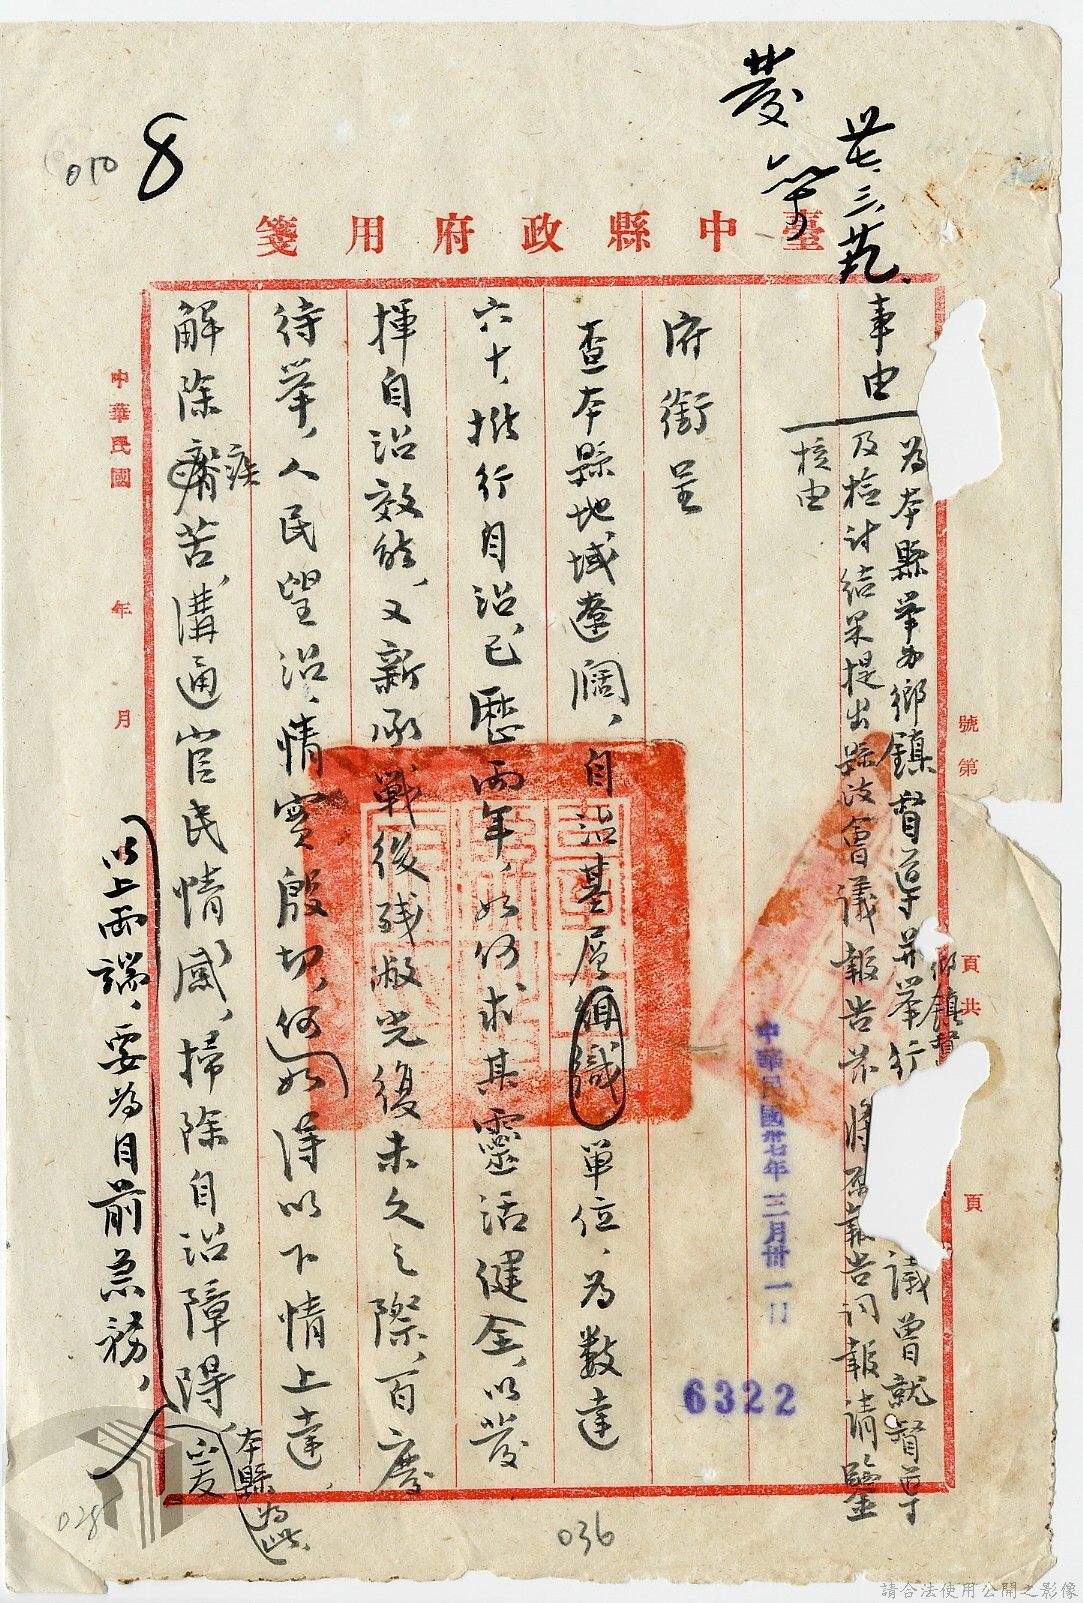 發第
卅七、三、
8
010
臺中縣政府用箋
事由
為本縣舉辦鄉鎮督導並舉行
議曾就督導
鄉鎮督
及檢討結果提出縣政會議報告茲將原報告詞報請鑒
核由
府銜呈
查本縣地域遼闊，自治基層組織單位，為數達
六十，推行自治，已歷兩年，如何求其靈活健全，以發
揮自治效能，又新承戰後殘敝光復未久之際，百廢
待舉，人民望治，情實殷切，何如得以下情上達，
解除疾苦，溝通官民情感，掃除自治障碍，
以上兩端，要為目前急務，
本縣為此，
爰
中華民國 年 月
號第
頁共
頁
中華民國卅七年三月卅一日
6322
036
028
請合法使用公開之影像